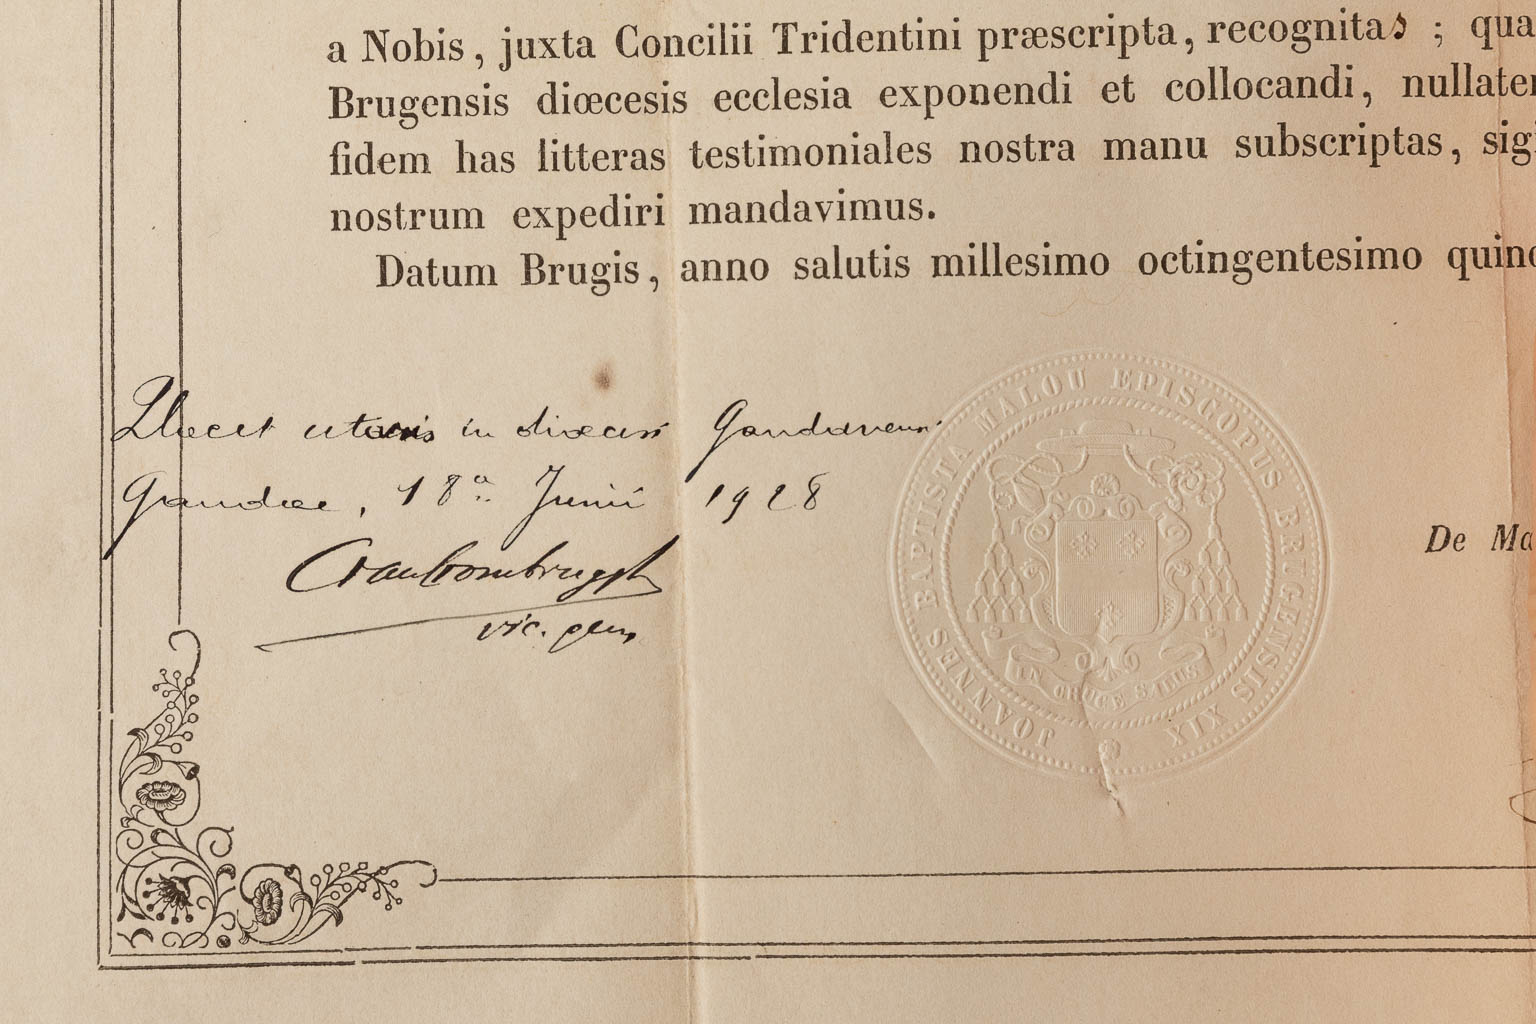 a Nobis, juxta Concilii Tridentini præscripta, recognitas; qua
Brugensis diœcesis ecclesia exponendi et collocandi, nullate
fidem has litteras testimoniales nostra manu subscriptas, sigi
nostrum expediri mandavimus.
Datum Brugis, anno salutis millesimo octingentesimo quinq
in diœcesi Gandavensi
Gandae, 18ª Junii 1928
vic. gen.
JOANNES BAPTISTA MALOU EPISCOPUS BRUGENSIS XIX
IN CRUCE SALUS
De Ma